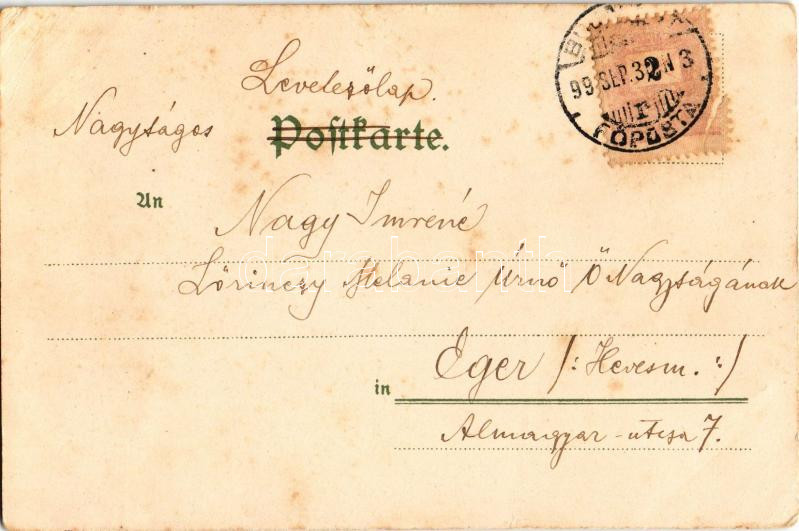 Levelezőlap.
Nagyságos Postkarte.
99 SEP. 3
2
FŐPOSTA
An Nagy Imréné
darabanth
Lőrinczy Melanie Úrnő Ő Nagyságának
in Eger /: Hevesm. :/
Almagyar-utcza 7.